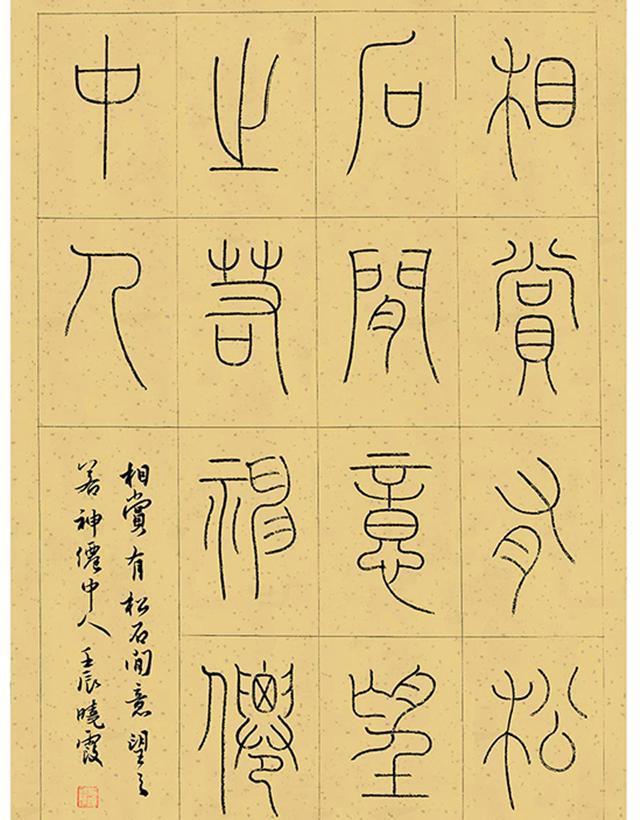 相賞有松
石閒意望
之若神僊
中人
相賞有松石間意望之
若神僊中人壬辰曉霞